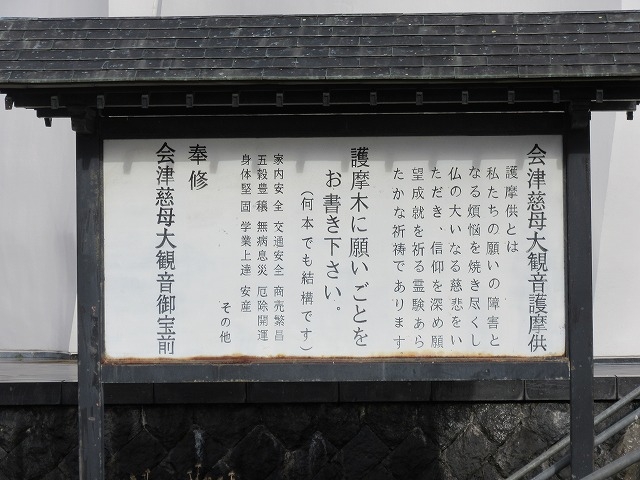 会津慈母大観音護摩供
護摩供とは
私たちの願いの障害と
なる煩悩を焼き尽くし
仏の大いなる慈悲をい
ただき、信仰を深め願
望成就を祈る霊験あら
たかな祈祷であります
護摩木に願いごとを
お書き下さい。
（何本でも結構です）
家内安全 交通安全 商売繁昌
五穀豊穣 無病息災 厄除開運
身体堅固 学業上達 安産
その他
奉修
会津慈母大観音御宝前